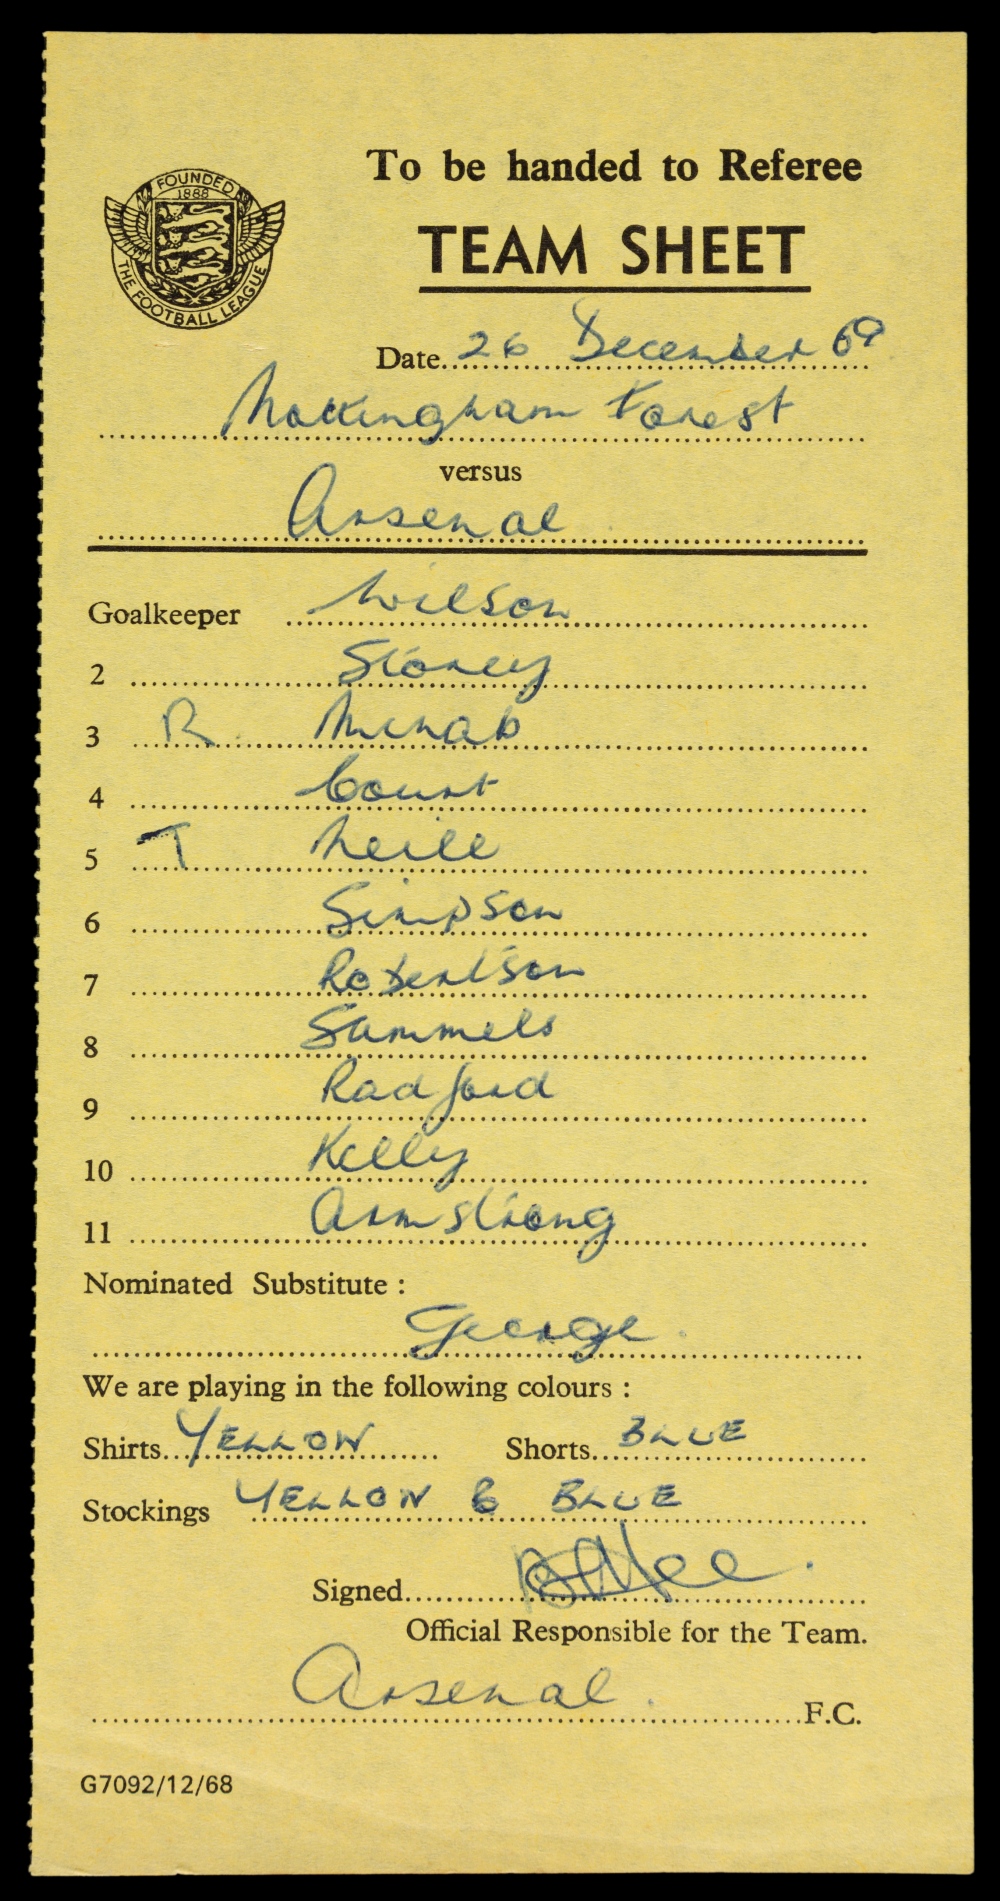 FOUNDED
1888
THE FOOTBALL LEAGUE
To be handed to Referee
TEAM SHEET
Date 26 December 69
Nottingham Forest
versus
Arsenal
Goalkeeper Wilson
2 Storey
3 R Mcnab
4 Court
5 T Neill
6 Simpson
7 Robertson
8 Sammels
9 Radford
10 Kelly
11 Armstrong
Nominated Substitute :
George
We are playing in the following colours :
Shirts YELLOW Shorts BLUE
Stockings YELLOW & BLUE
Signed B Mee
Official Responsible for the Team.
Arsenal F.C.
G7092/12/68